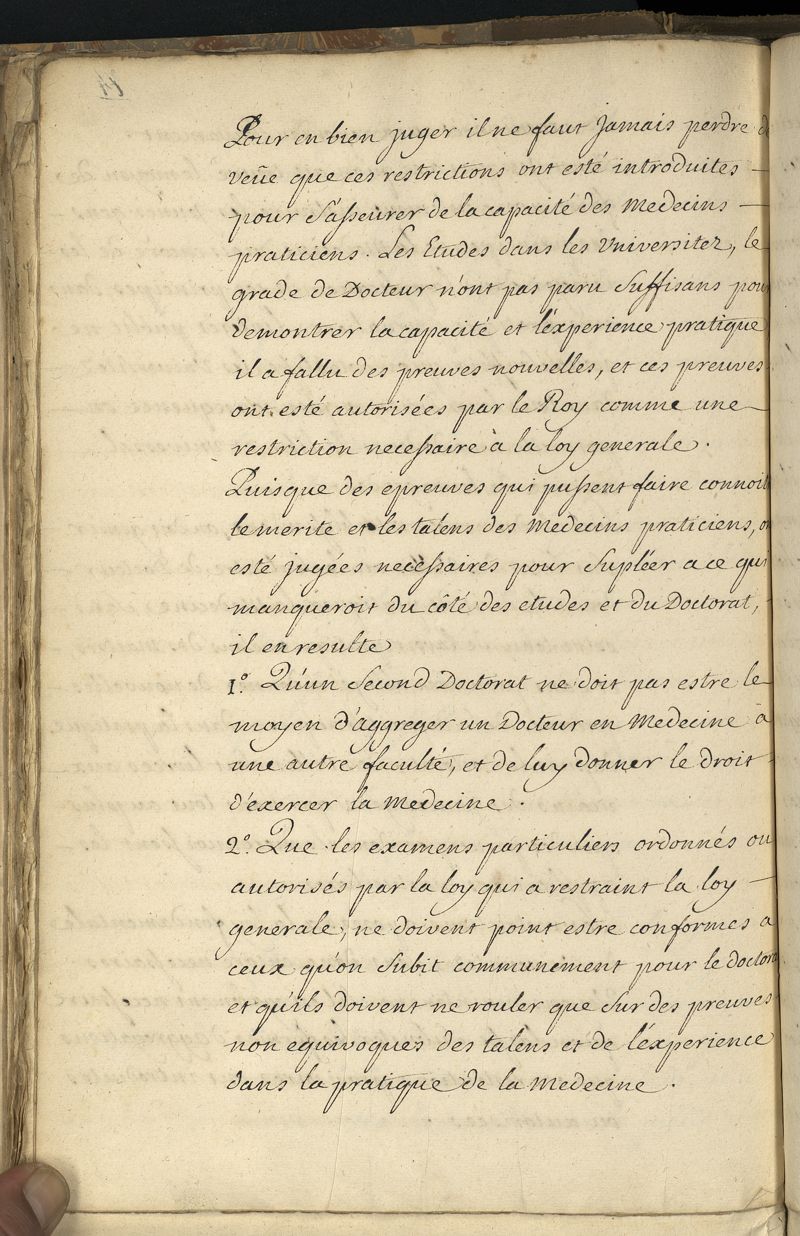 Pour en bien juger il ne faut Jamais perdre de
veüe que ces restrictions ont esté introduites
pour s'asseurer de la capacité des Medecins
praticiens. Les Etudes dans les Vniversitez, le
grade de Docteur n'ont pas paru suffisans pour
demontrer la capacité et l'experience pratique
il a fallu des preuves nouvelles, et ces preuves
ont esté autorisées par le Roy comme une
restriction necessaire à la loy generale.
Puisque des epreuves qui pussent faire connoit
le merite et les talens des Medecins praticiens, o
esté jugées necessaires pour Supléer a ce qui
manqueroit du côté des etudes et du Doctorat,
il en resulte
1.° Qu'un Second Doctorat ne doit pas estre le
moyen d'aggreger un Docteur en Medecine à
une autre faculté, et de luy donner le droit
d'exercer la Medecine.
2.° Que les examens particuliers ordonnés ou
autorisés par la loy qui a restraint la loy
generale, ne doivent point estre conformes a
ceux qu'on Subit communement pour le doctora
et qu'ils doivent ne rouler que Sur des preuves
non equivoques des talens et de l'experience
dans la pratique de la Medecine.